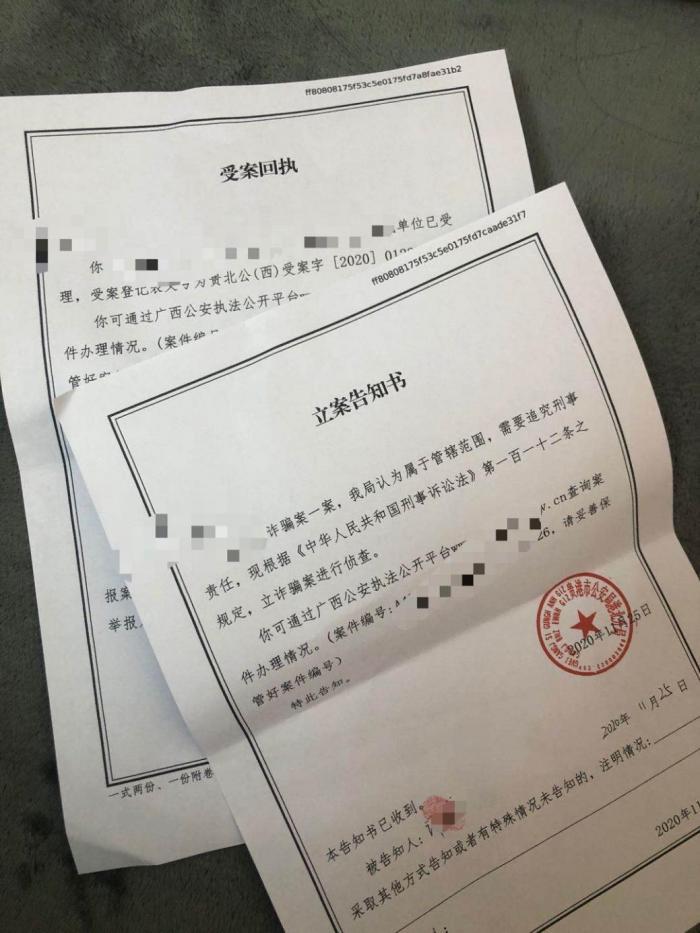 ff80808175f53c5e0175fd7a8fae31b2
受案回执
你
单位已受
理，受案登记表文号为贵北公(西)受案字[2020]
你可通过广西公安执法公开平台
件办理情况。(案件编号
管好
报案
举报
一式两份、一份附卷
ff80808175f53c5e0175fd7caade31f7
立案告知书
诈骗案一案，我局认为属于管辖范围，需要追究刑事
责任，现根据《中华人民共和国刑事诉讼法》第一百一十二条之
规定，立诈骗案进行侦查。
你可通过广西公安执法公开平台w
.cn查询案
件办理情况。(案件编号:
26，请妥善保
管好案件编号)
特此告知。
贵港市公安局港北分局
2020年11月25日
2020年 11 月 25 日
本告知书已收到。
被告知人:
采取其他方式告知或者有特殊情况未告知的，注明情况:
2020年11